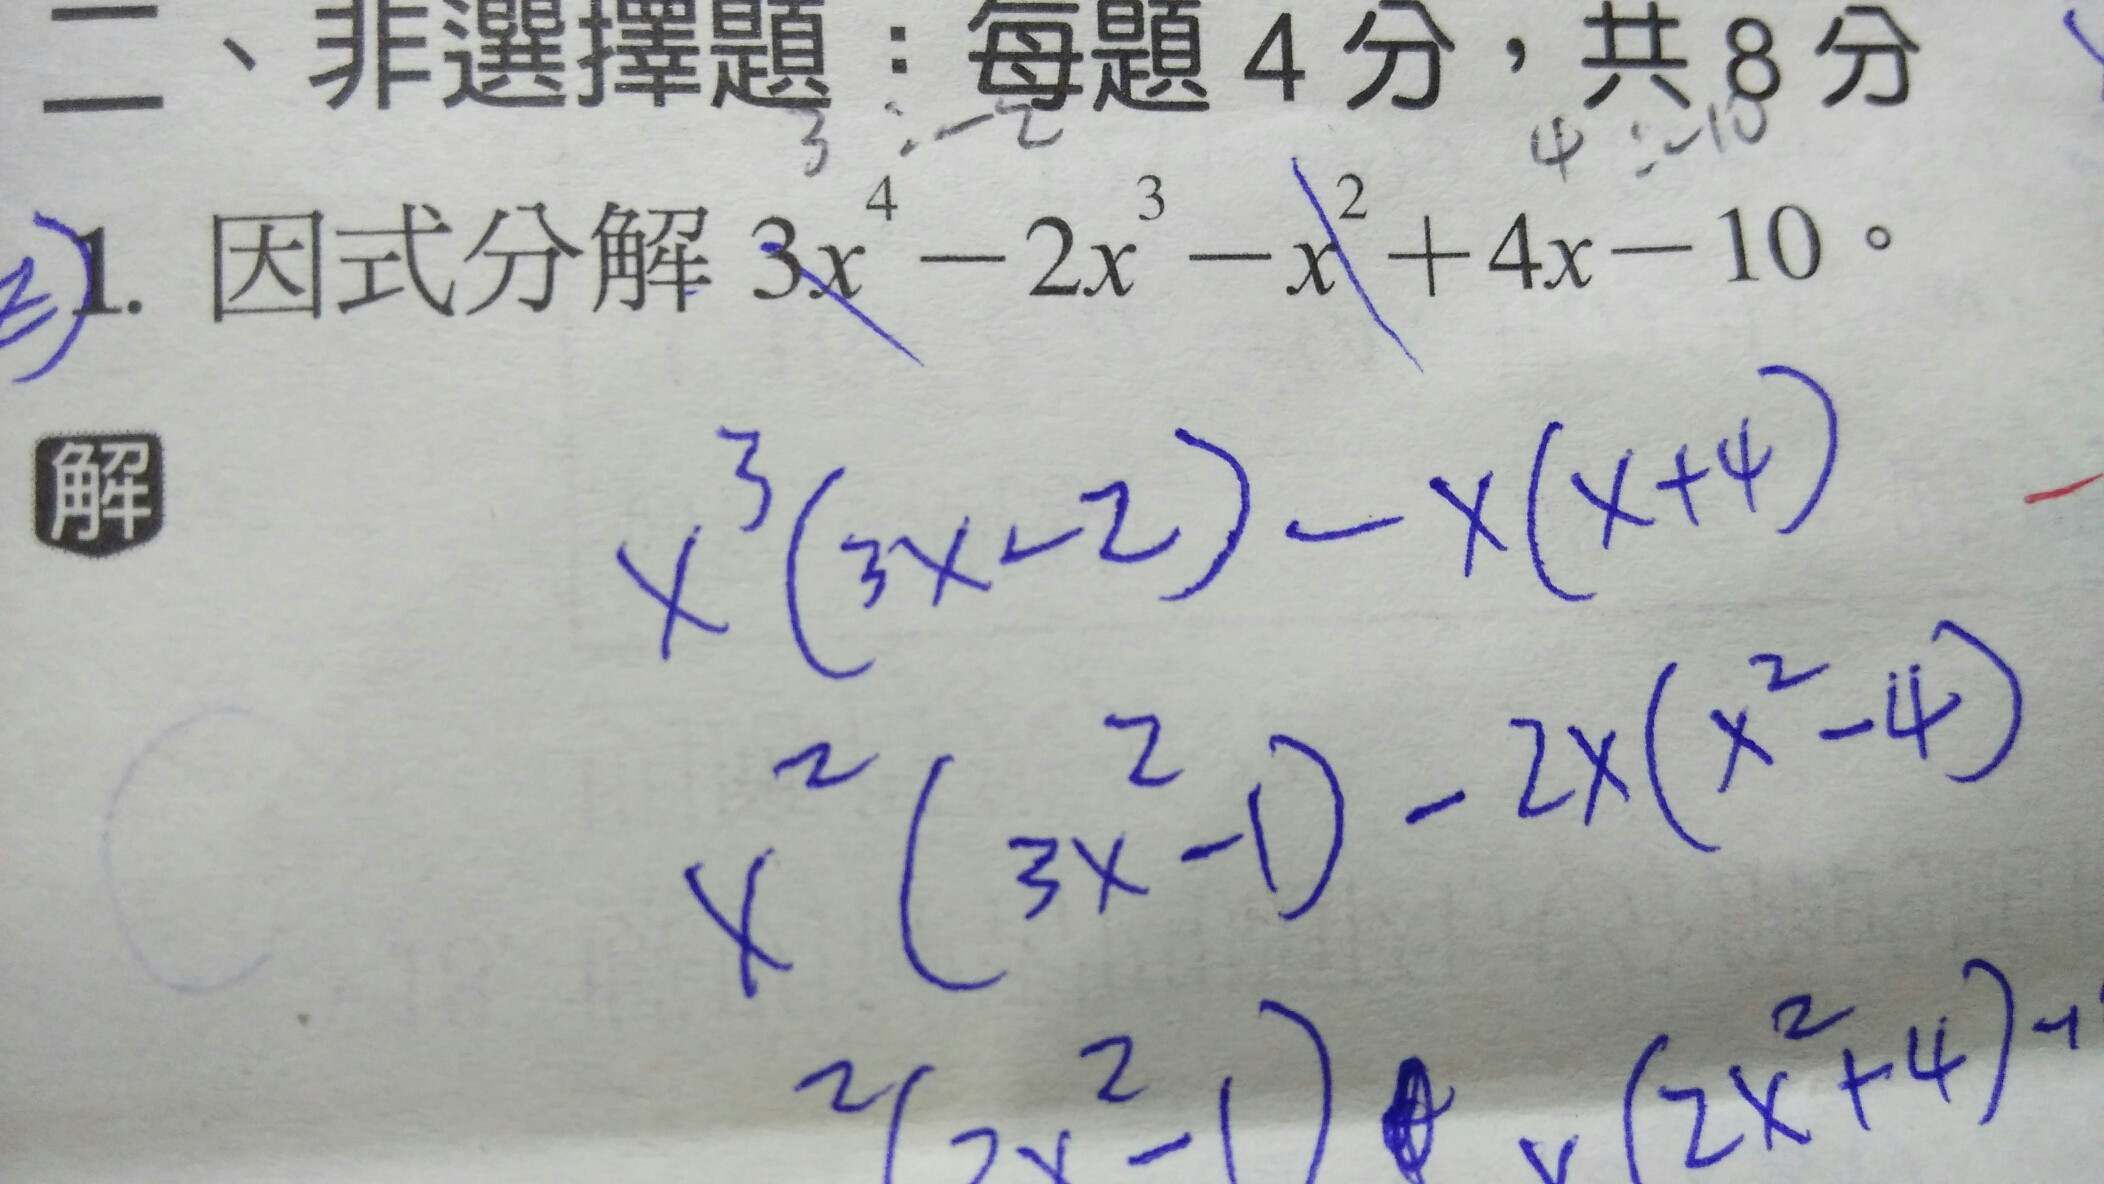 二、非選擇題：每題4分，共8分
3 : -2 4 : -10
1. 因式分解 3x⁴－2x³－x²＋4x－10。
解
x³(3x-2)-x(x+4)
x²(3x²-1)-2x(x²-4)
²( x²-1) x(2x²+4)-1